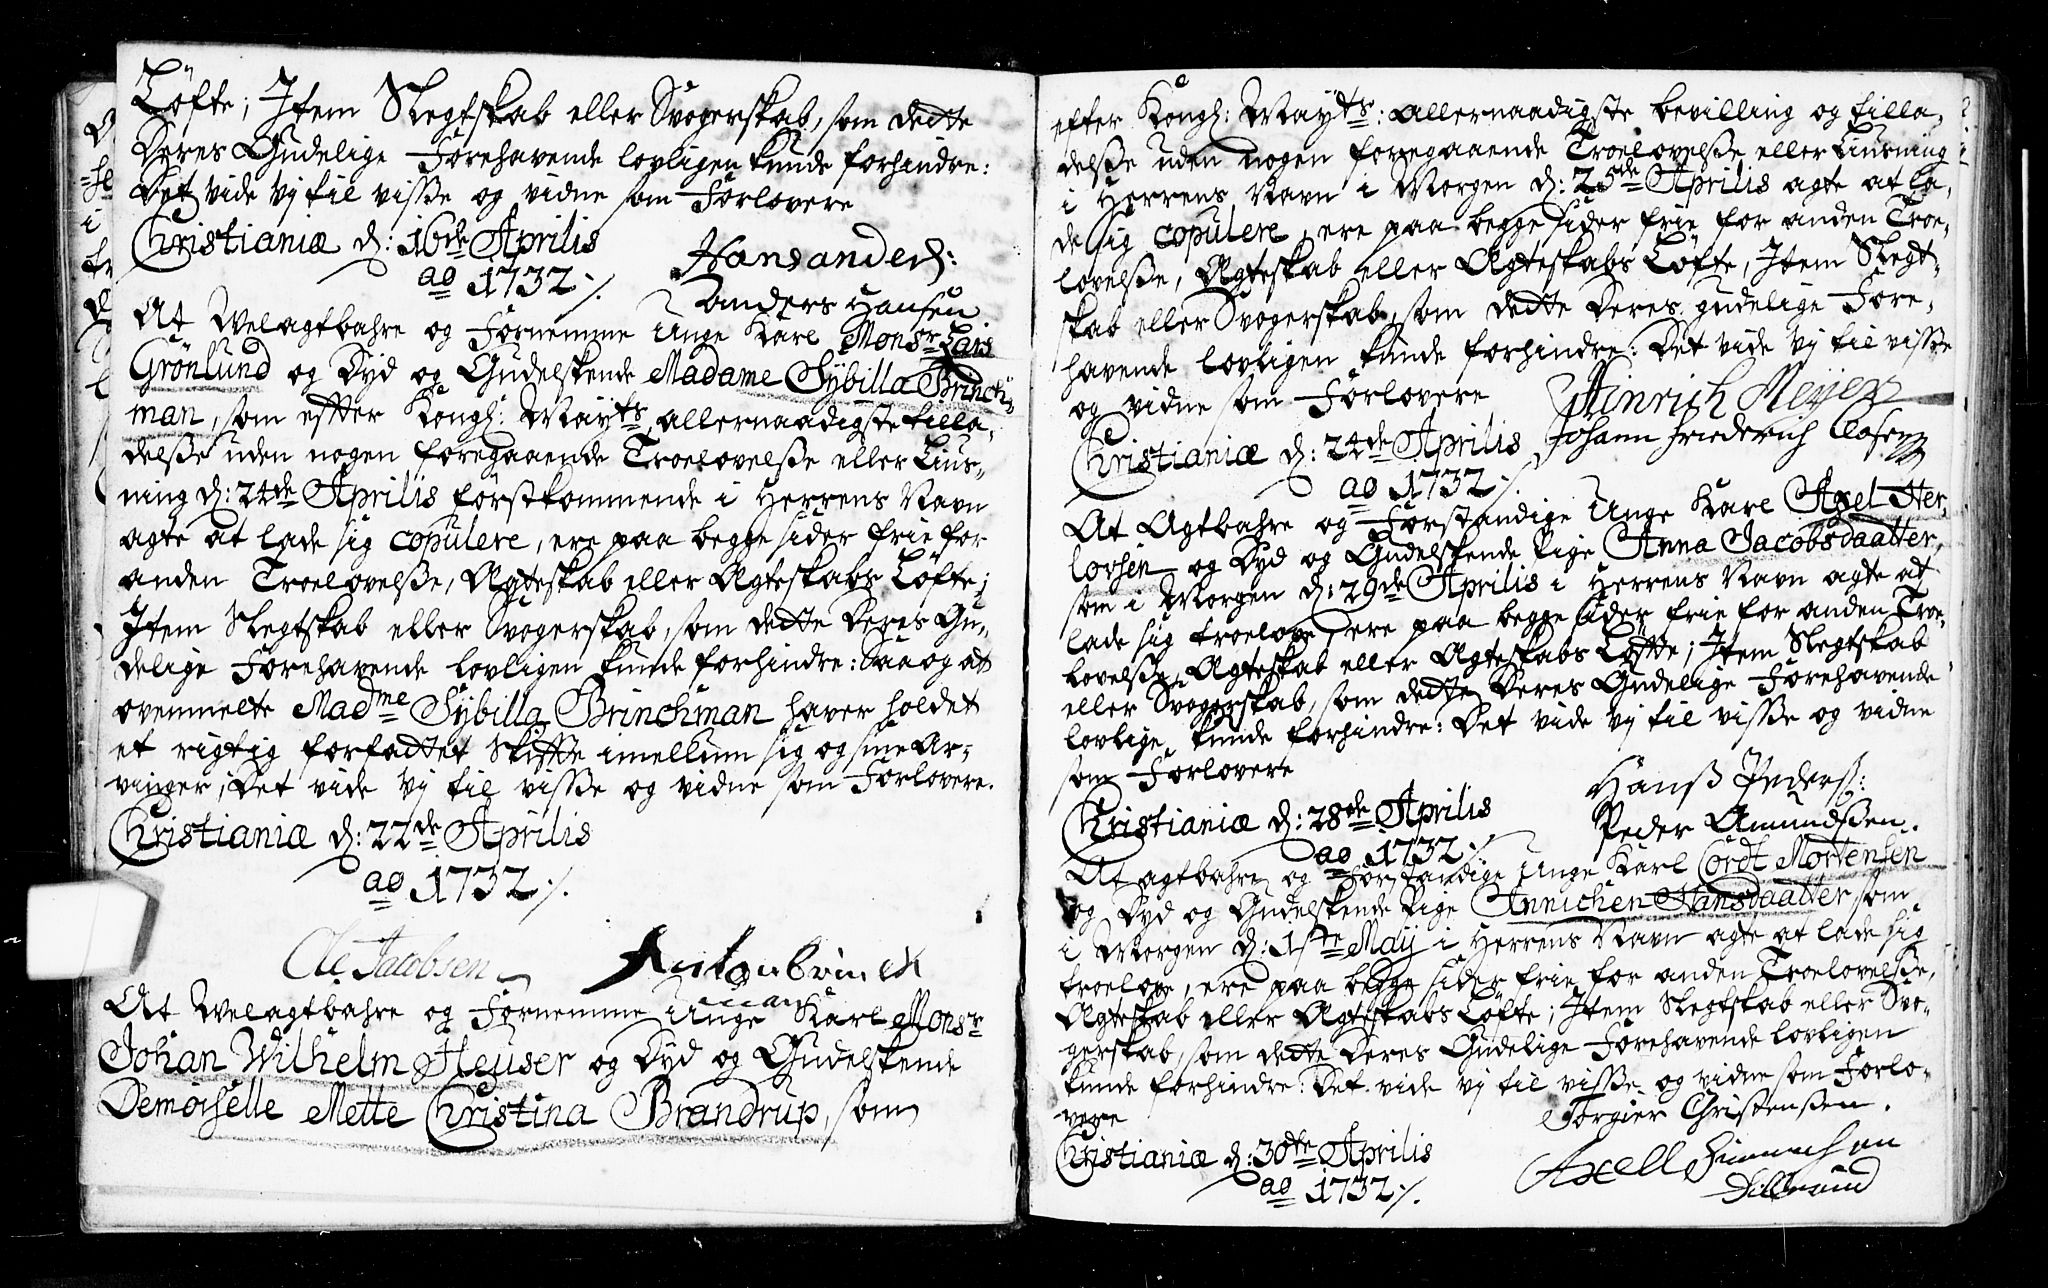 Löfte; Item Slegtskab eller Svogerskab, som dette
Deres Gudelige Forehavende lovligen kunde forhindre:
Det vide vj til visse og vidne som Forlovere
Christianiæ d: 16de Aprilis
ao 1732 ./.
Hans anders:
anders Hansen
At Welagtbahre og Fornemme Unge Karl Monsr Lars
Grönlund og Dyd og Gudelskende Madame Sÿbilla Brinch-
man, som effter Kongl: Mayts allernaadigste tilla-
delsse uden nogen foregaaende Troelovelsse eller Lius-
ning d: 24de Aprilis förstkommende i Herrens Navn
agte at lade sig copulere, ere paa begge sider frie for
anden Troelovelsse, Ægteskab eller Ægteskabs Löfte;
Item Slegtskab eller Svogerskab, som dette Deres Gu-
delige Forehavende lovligen kunde forhindre: Saa og at
ovenmelte Madme Sÿbilla Brinchman haver holdet
et rigtig forfattet Skiffte imellum sig og sine Ar-
vinger; Det vide vj til visse og vidne som Forlovere.
Christianiæ d: 22de Aprilis
ao 1732 ./.
Ole Jacobsen
Anton Brinck
man
At Welagtbahre og Fornemme Unge Karl Monsr
Johan Wilhelm Heuser og Dyd og Gudelskende
Demoiselle Mette Christina Brandrup, som
efter Kongl: Mayts: allernaadigste bevilling og tilla-
delsse uden nogen foregaaende Troelovelsse eller Liusning
i Herrens Navn i Morgen d: 25de Aprilis agte at la-
de sig copulere, ere paa begge sider frie for anden Troe-
lovelsse, Ægteskab eller Ægteskabs Löfte, Item Slegt-
skab eller Svogerskab, som dette Deres gudelige Fore-
havende lovligen kunde forhindre: Det vide vj til visse
og vidne som Forlovere
Hinrich Meijer
Christianiæ d: 24de Aprilis
Johann Friederich Closen
ao 1732 ./.
At Agtbahre og Forstandige Unge Karl Axel Her-
lovsen og Dyd og Gudelskende Pige Anna Jacobsdaatter,
som i Morgen d: 29de Aprilis i Herrens Navn agte at
lade sig troelove, ere paa begge sider frie for anden Troe-
lovelsse, Ægteskab eller Ægteskabs Löfte; Item Slegtskab
eller Svogerskab, som dette Deres Gudelige Forehavende
lovlige kunde forhindre: Det vide vj til visse og vidne
som Forlovere
Hanss Peders:
Christianiæ d: 28de Aprilis
Peder Amundssen.
ao 1732 ./.
At agtbahre og Forstandige Unge Karl Cordt Mortensen
og Dyd og Gudelskende Pige Annichen Hansdaatter, som
i Morgen d: 1ste Maij i Herrens Navn agte at lade sig
troelove, ere paa begge sider frie for anden Troelovelsse,
Ægteskab eller Ægteskabs Löfte; Item Slegtskab eller Svo-
gerskab, som dette Deres Gudelige Forehavende lovligen
kunde forhindre: Det vide vj til visse og vidne som Forlo-
vere
Torgier Christenssen.
Christianiæ d: 30te Aprilis
Axell
ao 1732 ./.